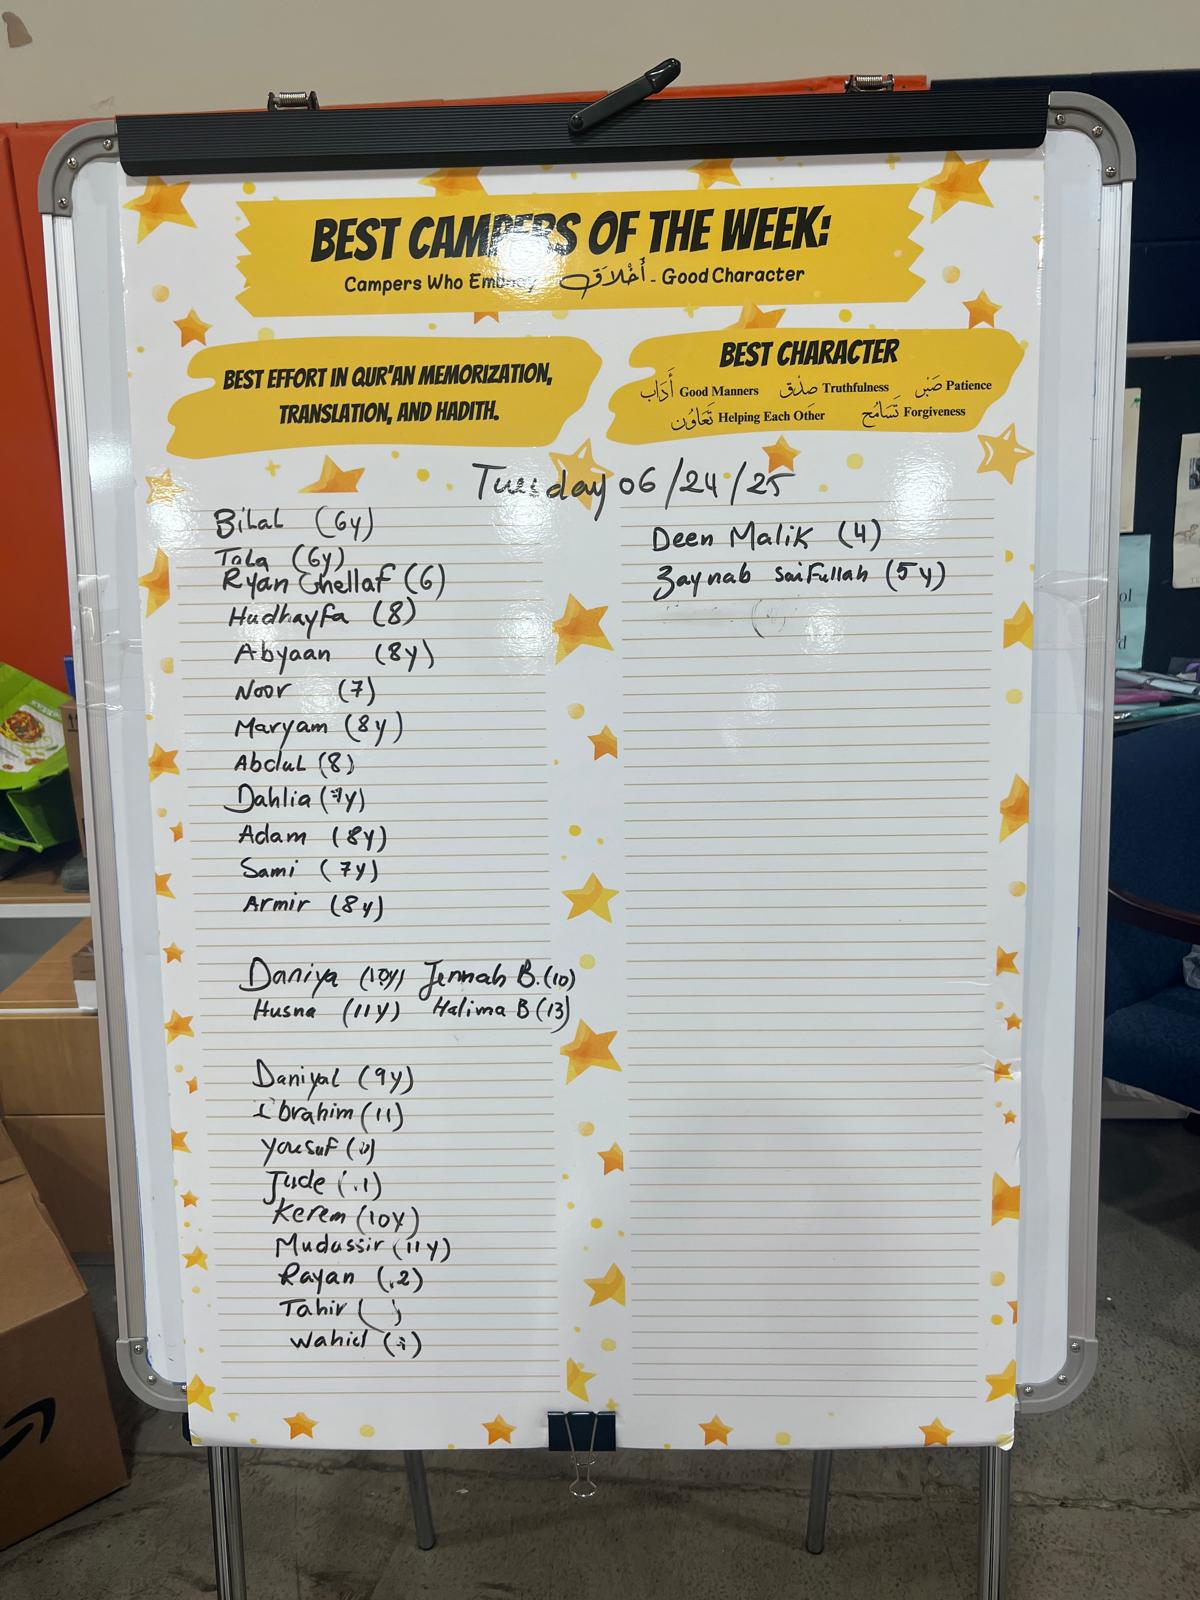 BEST CAMPERS OF THE WEEK:
Campers Who Embody أَخْلَاق - Good Character
BEST EFFORT IN QUR'AN MEMORIZATION,
TRANSLATION, AND HADITH.
BEST CHARACTER
آدَاب Good Manners صِدْق Truthfulness صَبْر Patience
تَعَاوُن Helping Each Other تَسَامُح Forgiveness
Tuesday 06/24/25
Bilal (6y)
Tola (6y)
Ryan Ghellaf (6)
Hudhayfa (8)
Abyaan (8y)
Noor (7)
Maryam (8y)
Abdul (8)
Dahlia (7y)
Adam (8y)
Sami (7y)
Armir (8y)
Daniya (10y) Jennah B. (10)
Husna (11y) Halima B (13)
Daniyal (9y)
Ibrahim (11)
Yousuf
Jude
Kerem (10y)
Mudassir (11y)
Rayan
Tahir
Wahid
Deen Malik (4)
Zaynab Saifullah (5y)